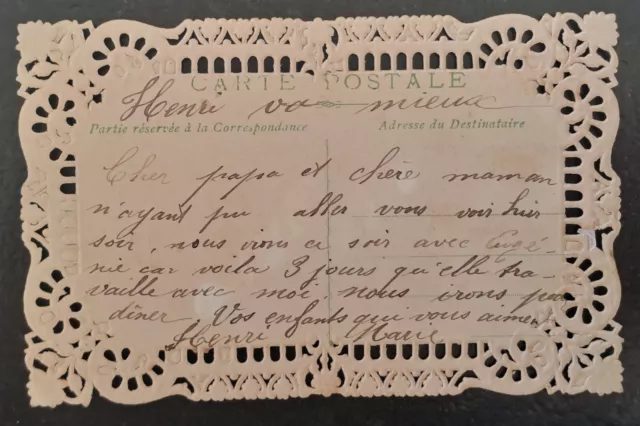 CARTE POSTALE
Henri va mieux
Partie réservée à la Correspondance
Adresse du Destinataire
Cher papa et chère maman
n'ayant pu aller vous voir hier
soir, nous irons ce soir avec Eugé-
nie car voila 3 jours qu'elle tra-
vaille avec moi nous irons pour
dîner. Vos enfants qui vous aiment
Henri Marie